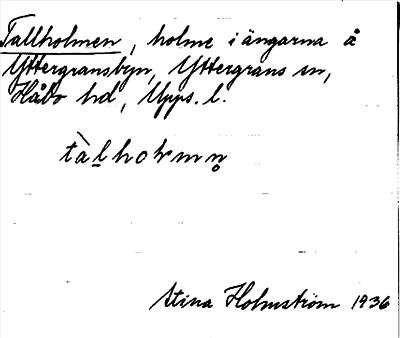 Tallholmen, holme i ängarna å
Yttergransbyn, Yttergrans sn,
Håbo hd, Upps. l.
tàl̲holmn̥
Stina Holmström 1936